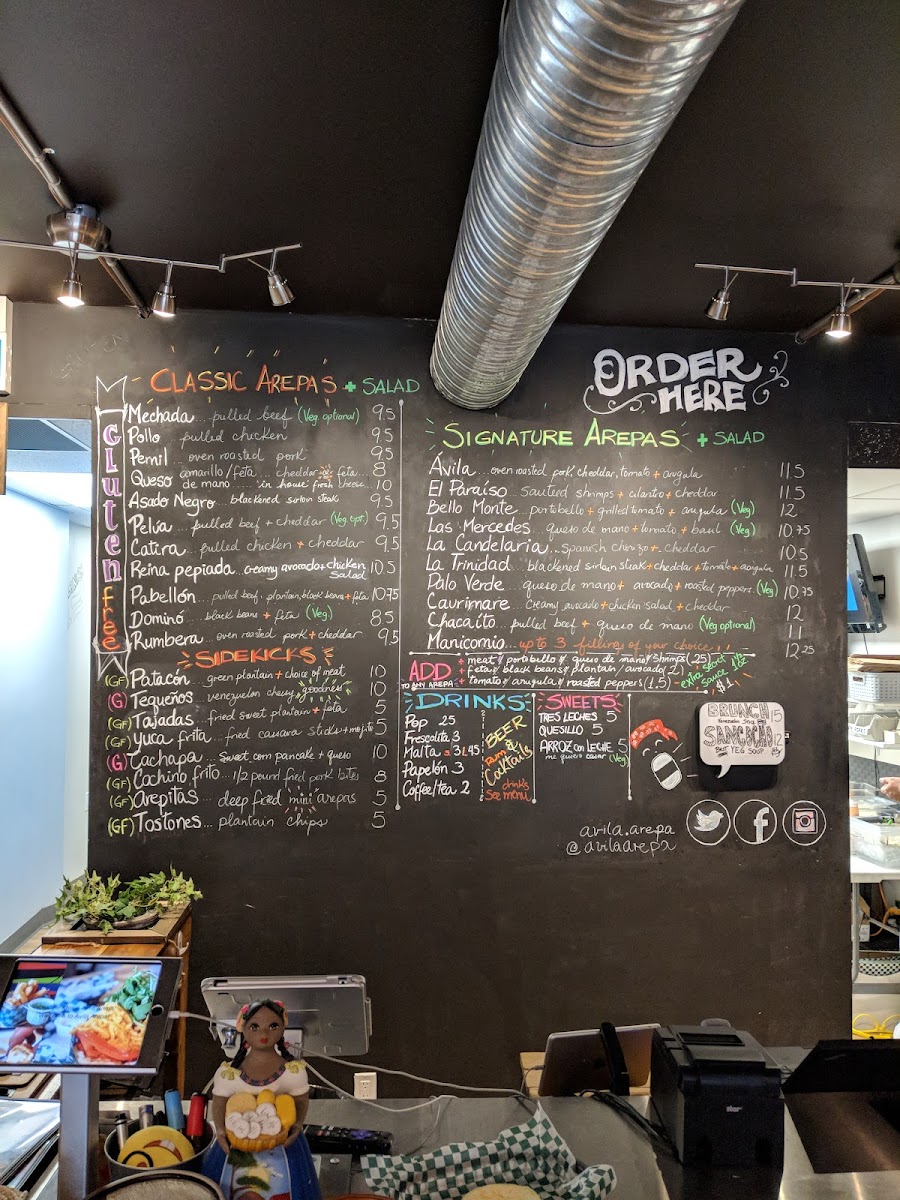 CLASSIC AREPAS + SALAD
gluten free
Mechada... pulled beef (Veg. optional) 9.5
Pollo pulled chicken 9.5
Pernil .. oven roasted pork 9.5
Queso amarillo/feta... cheddar or feta... 8
de mano.... in house fresh cheese... 10
Asado Negro.. blackened sirloin steak 9.5
Pelúa .. pulled beef + cheddar (Veg. opt.) 9.5
Catira... pulled chicken + cheddar 9.5
Reina pepiada...creamy avocado + chicken salad 10.5
Pabellón pulled beef, plantain, black beans + feta 10.75
Dominó black beans + feta (Veg) 8.5
Rumbera.. oven roasted pork + cheddar 9.5
SIDEKICKS
(GF) Patacón green plantain + choice of meat 10
(G) Tequeños venezuelan chewy goodness 10
(GF) Tajadas .. fried sweet plantain + feta 5
(GF) Yuca frita.. fried cassava sticks + mojito 5
(G) Cachapa... sweet corn pancake + queso 10
(GF) Cochino frito... 1/2 pound fried pork bites 8
(GF) Arepitas ... deep fried mini arepas 5
(GF) Tostones... plantain chips 5
ORDER HERE
SIGNATURE AREPAS + SALAD
Ávila... oven roasted pork, cheddar, tomato + arugula 11.5
El Paraíso... sauteed shrimps + cilantro + cheddar 11.5
Bello Monte...portobello + grilled tomato + arugula (Veg) 12
Las Mercedes.. queso de mano + tomato + basil (Veg) 10.75
La Candelaria... spanish chorizo + cheddar 10.5
La Trinidad.. blackened sirloin steak + cheddar + tomato + arugula 11.5
Palo Verde .. queso de mano + avocado + roasted peppers. (Veg) 10.75
Caurimare creamy avocado + chicken salad + cheddar 12
Chacaíto .. pulled beef + queso de mano (Veg optional) 11
Manicomio ... up to 3 fillings of your choice... 12.25
ADD TO ANY AREPA
+ meat // portobello // queso de mano // shrimps (2.5)
+ feta // black beans // plantain / avocado (2)
+ tomato // arugula // roasted peppers (1.5)
+ extra secret sauce $1
DRINKS
Pop 2.5
Frescolita 3
Malta 3 / 4.5
Papelón 3
Coffee/tea 2
BEER
Rum & Cocktails
drinks
See menu
SWEETS
TRES LECHES 5
QUESILLO 5
ARROZ con LECHE 5
me quiero casar (Veg)
BRUNCH 15
SANCOCHO 12
BEST YEG SOUP
avila.arepa
@avilaarepa
star